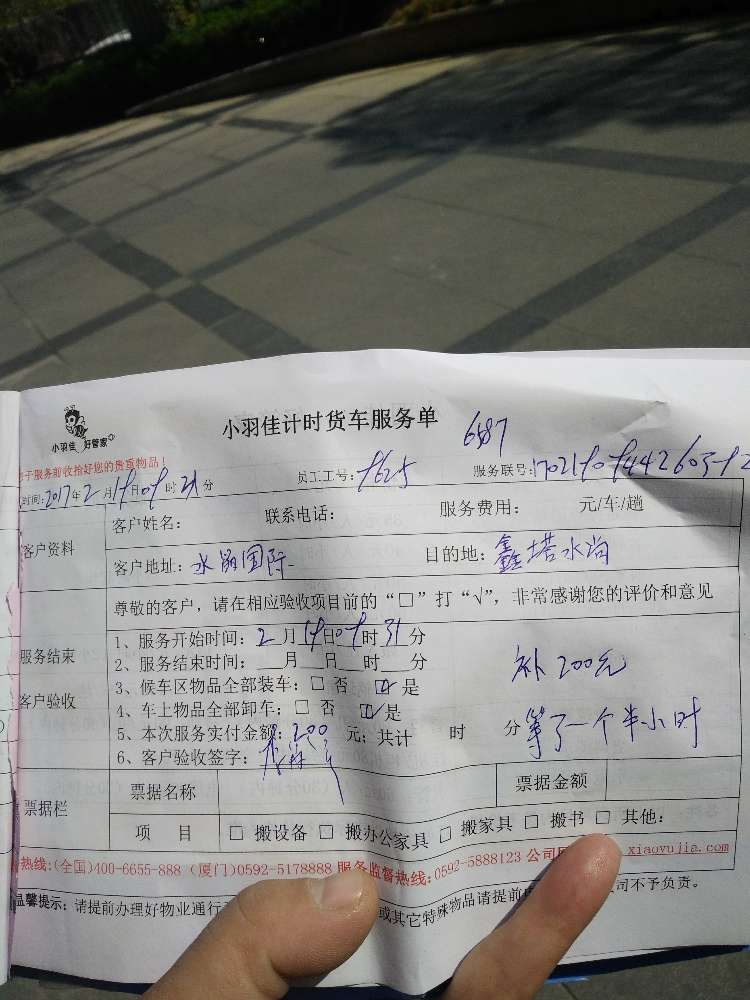 小羽佳计时货车服务单
小羽佳 好管家
6587
服务前收拾好您的贵重物品！
员工工号：
服务联号：
时间：2017年2月19日09时31分
客户资料
客户姓名： 联系电话： 服务费用： 元/车/趟
客户地址：水晶国际 目的地：鑫塔水尚
尊敬的客户，请在相应验收项目前的“□”打“√”，非常感谢您的评价和意见
服务结束
客户验收
1、服务开始时间：2月19日09时31分
2、服务结束时间：__月__日__时__分
3、候车区物品全部装车：□ 否 ☑ 是
4、车上物品全部卸车：□ 否 ☑ 是
5、本次服务实付金额：200元；共计 时 分
6、客户验收签字：
补200元
等了一个半小时
票据栏
票据名称 票据金额
项 目 □ 搬设备 □ 搬办公家具 □ 搬家具 □ 搬书 □ 其他：
热线：(全国)400-6655-888 (厦门)0592-5178888 服务监督热线：0592-5888123 公司 xiaoyujia.com
温馨提示：请提前办理好物业通行 或其它特殊物品请提前 司不予负责。